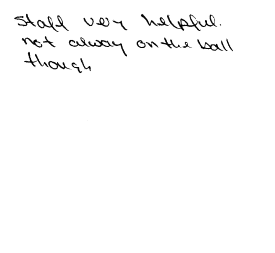 Staff very helpful.
not alway on the ball
though